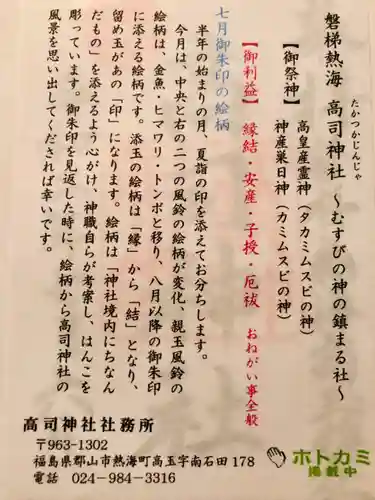 磐梯熱海 高司神社 ～むすびの神の鎮まる社～
たかつかじんじゃ
【御祭神】 高皇産霊神（タカミムスビの神）
神産巣日神（カミムスビの神）
【御利益】 縁結・安産・子授・厄祓 おねがい事全般
七月御朱印の絵柄
半年の始まりの月、夏詣の印を添えてお分ちします。
今月は、中央と右の二つの風鈴の絵柄が変化、親玉風鈴の
絵柄は、金魚・ヒマワリ・トンボと移り、八月以降の御朱印
に添える絵柄です。添玉の絵柄は「縁」から「結」となり、
留め玉があの「印」になります。絵柄は「神社境内にちなん
だもの」を添えるよう心がけ、神職自らが考案し、はんこを
彫っています。御朱印を見返した時に、絵柄から高司神社の
風景を思い出してくだされば幸いです。
高司神社社務所
〒963-1302
福島県郡山市熱海町高玉字南石田178
電話 024-984-3316
ホトカミ
掲載中